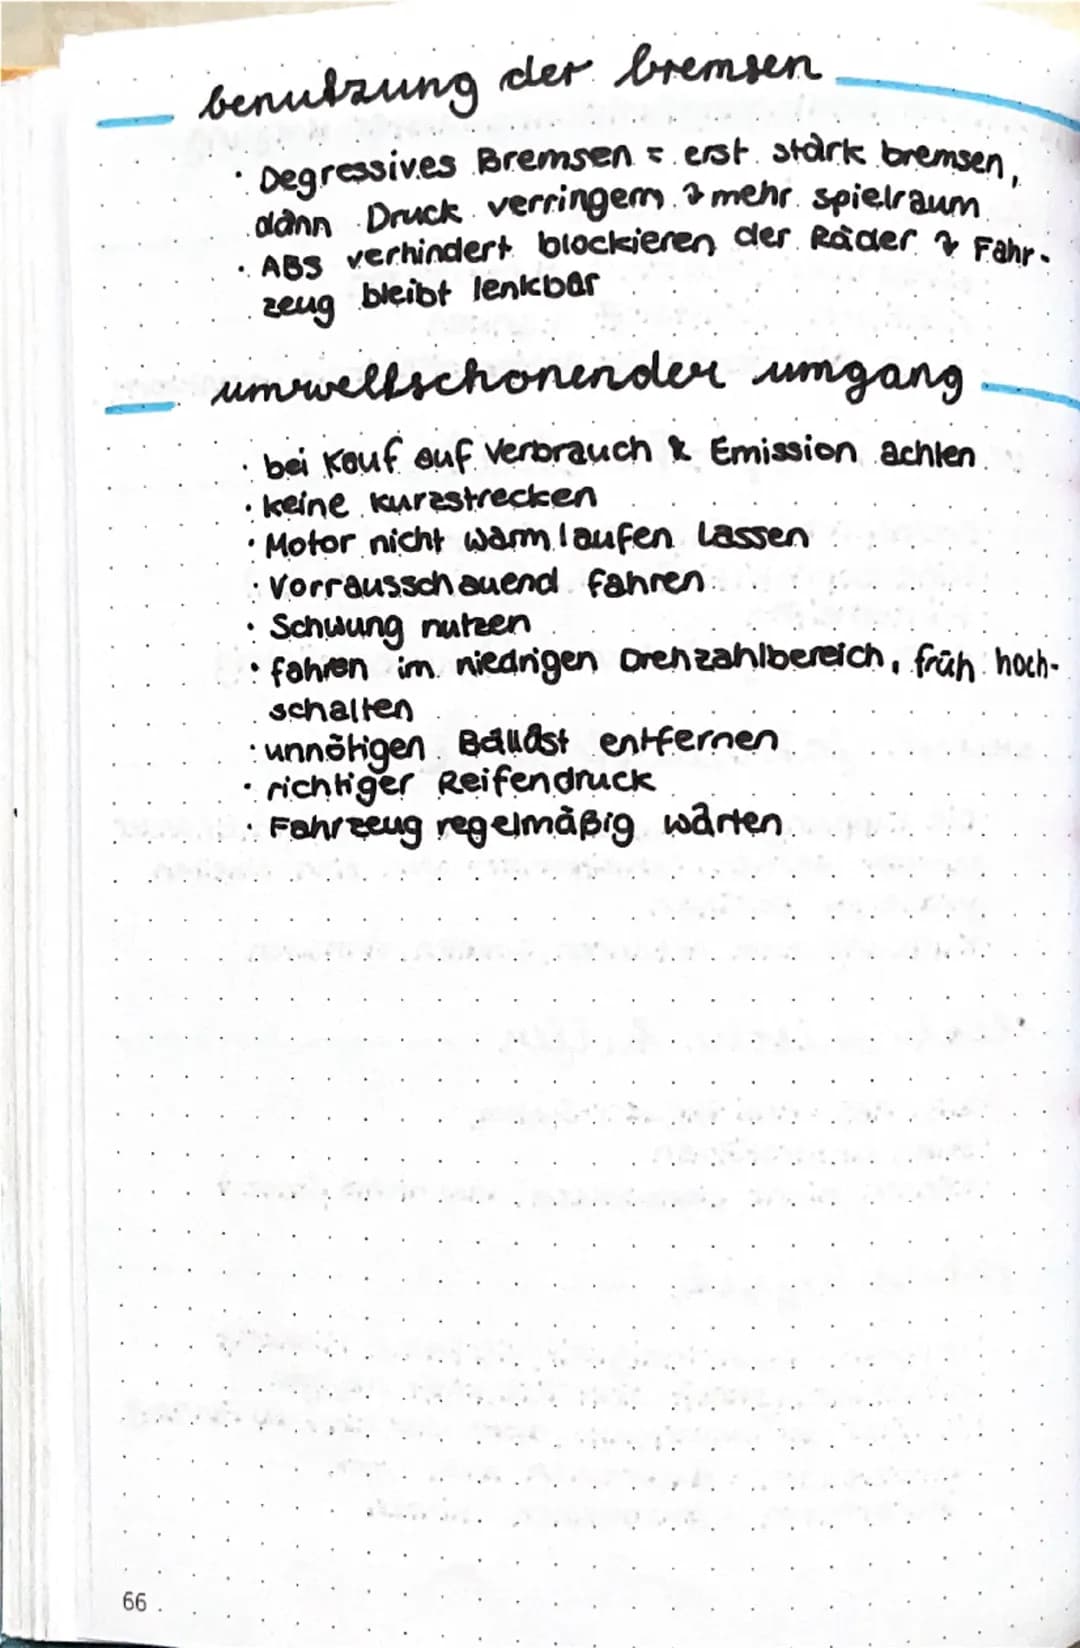 benutzung der bremsen
· Degressives Bremsen = erst stark bremsen,
dann Druck verringern → mehr spielraum
· ABS verhindert blockieren der Räder → Fahr-
zeug bleibt lenkbar
umweltschonender umgang
· bei Kauf auf Verbrauch & Emission achten
· keine Kurzstrecken
· Motor nicht warm laufen lassen
· Vorrausschauend fahren
· Schwung nutzen
· fahren im niedrigen Drehzahlbereich, früh hoch-
schalten
· unnötigen Ballast entfernen
· richtiger Reifendruck
· Fahrzeug regelmäßig warten
66